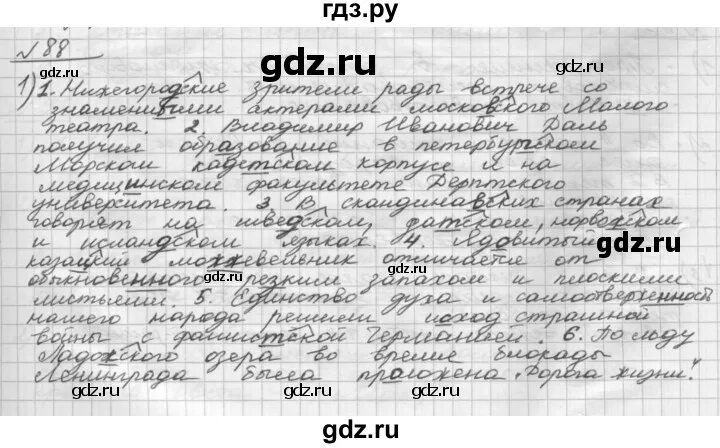 гдз.ру
№ 88
1) 1. Нижегородские зрители рады встрече со
знаменитыми актерами московского Малого
театра. 2. Владимир Иванович Даль
получил образование в петербургском
Морском кадетском корпусе и на
медицинском факультете Дерптского
университета. 3. В скандинавских странах
говорят на шведском, датском, норвежском
и исландском языках. 4. Ядовитый
казацкий можжевельник отличается от
обыкновенного резким запахом и плоскими
листьями. 5. Единство духа и самоотверженность
нашего народа решили исход страшной
войны с фашистской Германией. 6. По льду
Ладожского озера во время блокады
Ленинграда была проложена „Дорога жизни".
гдз.ру